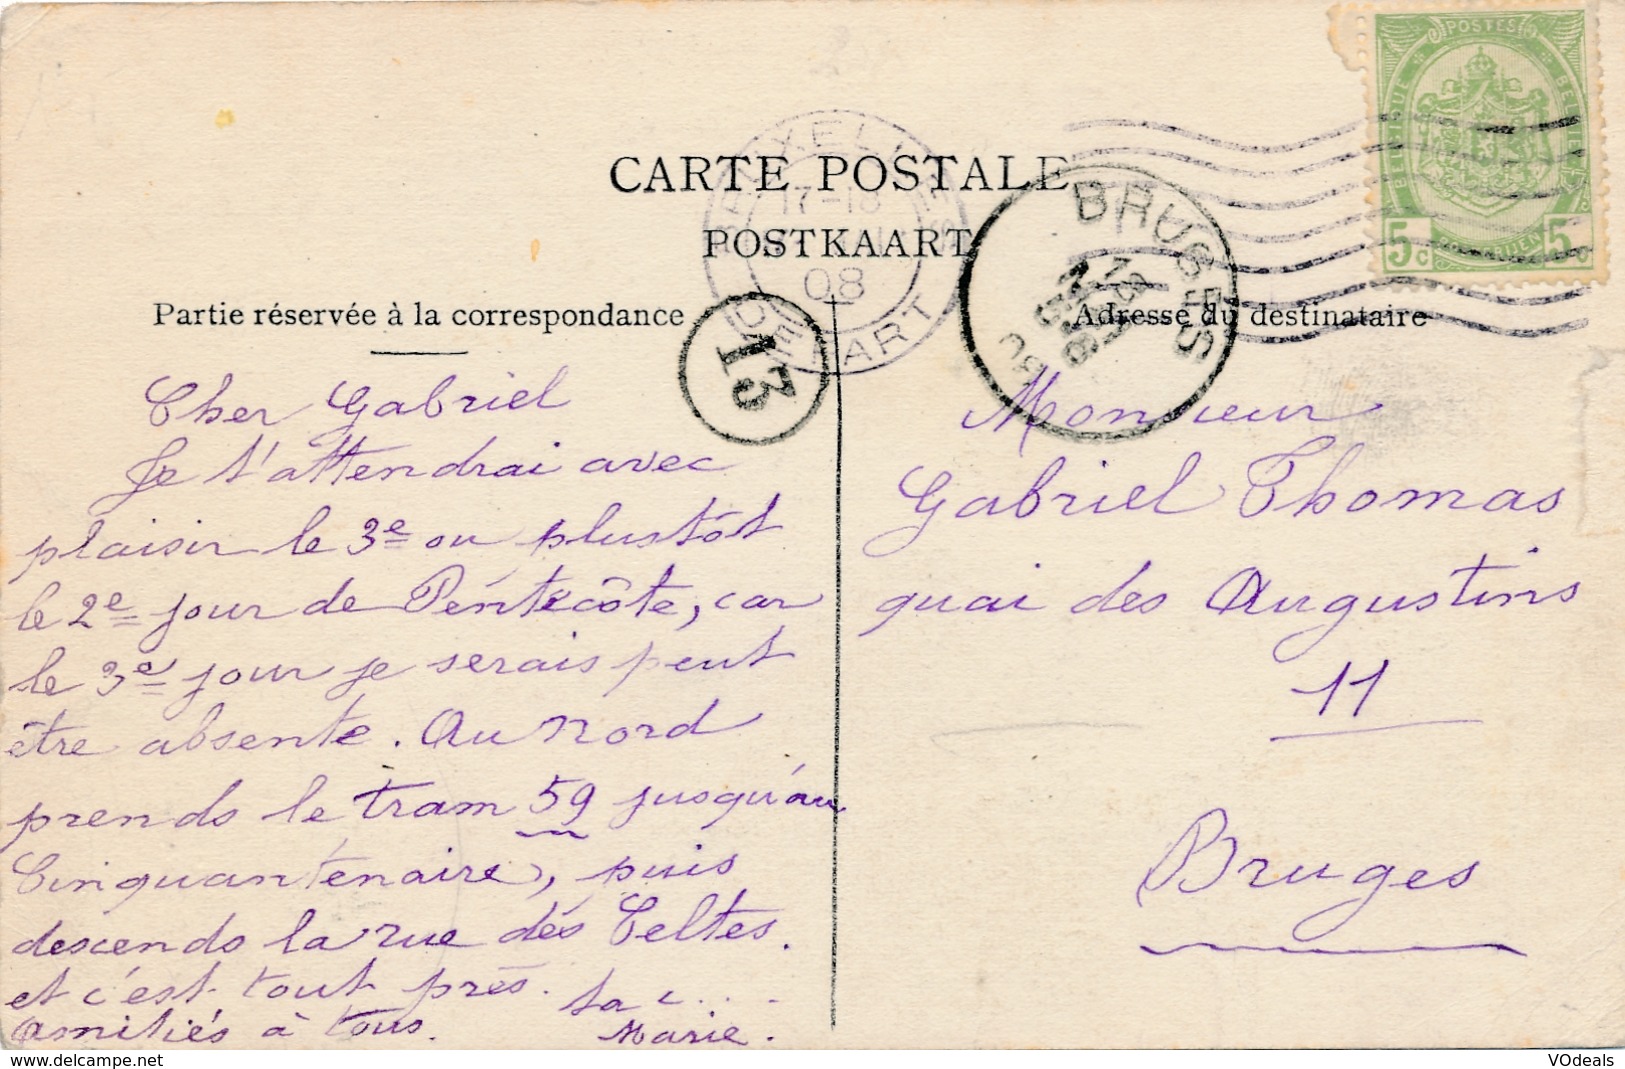 CARTE POSTALE
POSTKAART
Partie réservée à la correspondance
Adresse du destinataire
POSTES
BELGIQUE
5c 5c
BRUXELLES
17-18
08
DÉPART
BRUGES
13
Cher Gabriel
Je t'attendrai avec
plaisir le 3e ou plustôt
le 2e jour de Pentecôte, car
le 3e jour je serais peut
être absente. Au nord
prends le tram 59 jusqu'au
Cinquantenaire, puis
descends la rue des Celtes.
et c'est tout près.
Amitiés à tous.
ta c...
Marie.
Monsieur
Gabriel Thomas
quai des Augustins
11
Bruges
VOdeals
www.delcampe.net